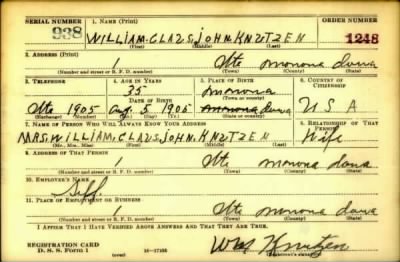 SERIAL NUMBER 1. NAME (Print) ORDER NUMBER
938 WILLIAM. CLAUS. JOHN. KNUTZEN 1248
(First) (Middle) (Last)
2. ADDRESS (Print)
1 Ute monona Iowa
(Number and street or R. F. D. number) (Town) (County) (State)
3. TELEPHONE 4. AGE IN YEARS 5. PLACE OF BIRTH 6. COUNTRY OF CITIZENSHIP
35 monona
DATE OF BIRTH (Town or county)
Ute 1905 Aug. 5 1905 monona Iowa U S A
(Exchange) (Number) (Mo.) (Day) (Yr.) (State or country)
7. NAME OF PERSON WHO WILL ALWAYS KNOW YOUR ADDRESS 8. RELATIONSHIP OF THAT PERSON
MRS WILLIAM. CLAUS. JOHN. KNUTZEN Wife
(Mr., Mrs., Miss) (First) (Middle) (Last)
9. ADDRESS OF THAT PERSON
1 Ute monona Iowa
(Number and street or R. F. D. number) (Town) (County) (State)
10. EMPLOYER'S NAME
Self.
11. PLACE OF EMPLOYMENT OR BUSINESS
1 Ute monona Iowa
(Number and street or R. F. D. number) (Town) (County) (State)
I AFFIRM THAT I HAVE VERIFIED ABOVE ANSWERS AND THAT THEY ARE TRUE.
REGISTRATION CARD
D. S. S. Form 1 16—17105 Wm Knutzen
(Registrant's signature)